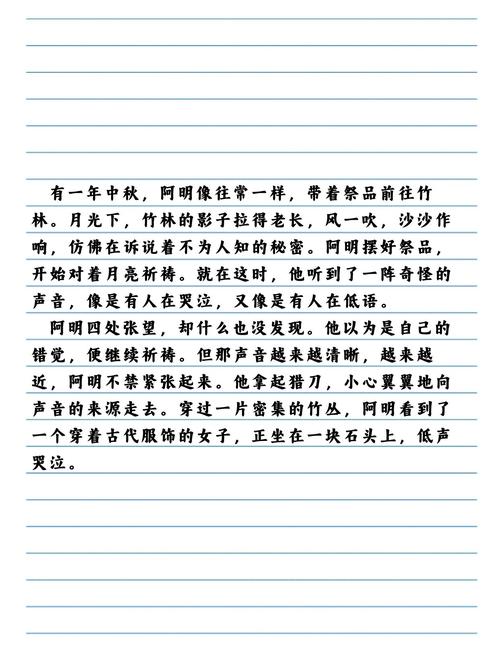 有一年中秋，阿明像往常一样，带着祭品前往竹
林。月光下，竹林的影子拉得老长，风一吹，沙沙作
响，仿佛在诉说着不为人知的秘密。阿明摆好祭品，
开始对着月亮祈祷。就在这时，他听到了一阵奇怪的
声音，像是有人在哭泣，又像是有人在低语。
阿明四处张望，却什么也没发现。他以为是自己的
错觉，便继续祈祷。但那声音越来越清晰，越来越
近，阿明不禁紧张起来。他拿起猎刀，小心翼翼地向
声音的来源走去。穿过一片密集的竹丛，阿明看到了
一个穿着古代服饰的女子，正坐在一块石头上，低声
哭泣。